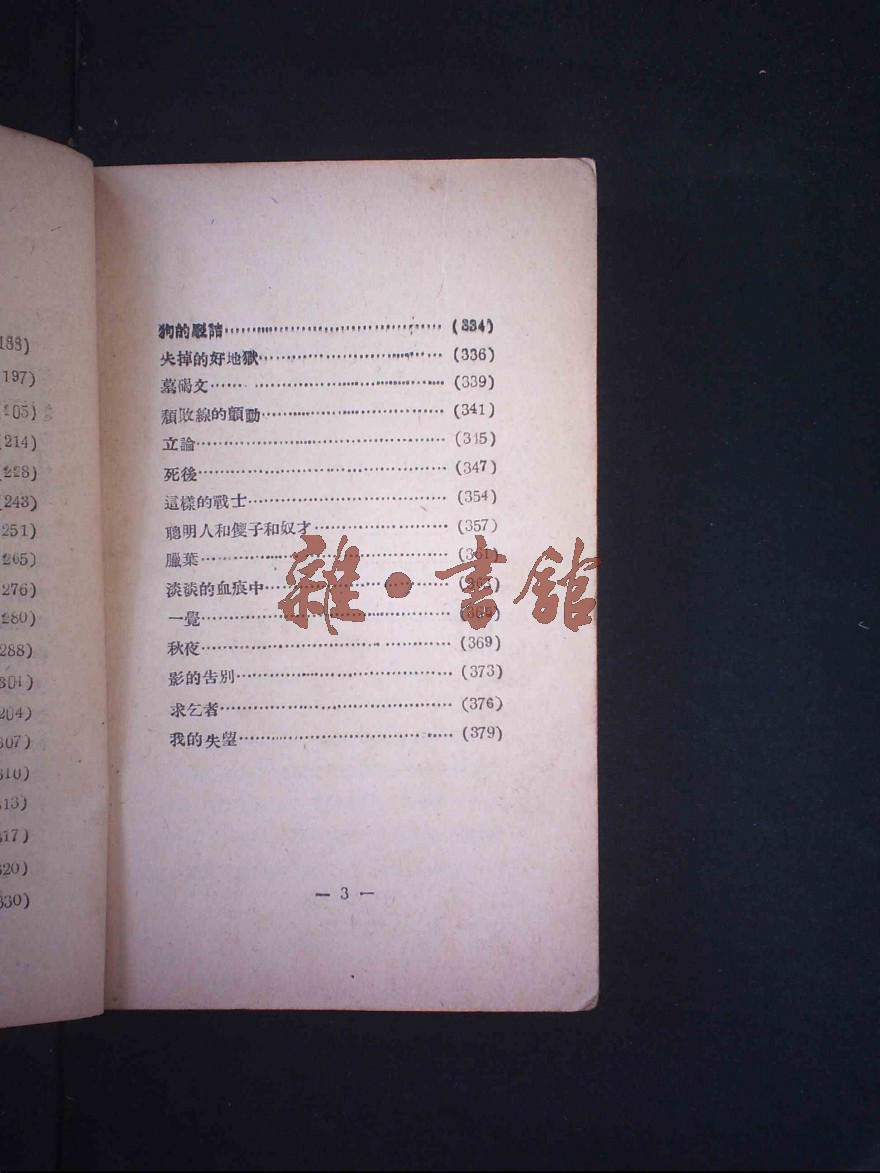 188)
197)
205)
214)
228)
243)
251)
265)
276)
280)
288)
301)
204)
307)
310)
313)
317)
320)
330)
狗的駁詰 (334)
失掉的好地獄 (336)
墓碣文 (339)
頹敗線的顫動 (341)
立論 (345)
死後 (347)
這樣的戰士 (354)
聰明人和傻子和奴才 (357)
臘葉 (361)
淡淡的血痕中 (363)
一覺 (365)
秋夜 (369)
影的告別 (373)
求乞者 (376)
我的失望 (379)
— 3 —
雜·書館